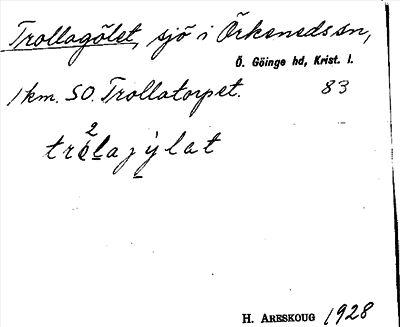 Trollagölet, sjö i Örkeneds sn,
Ö. Göinge hd, Krist. l.
1 km. SO. Trollatorpet. 83
H. Areskoug 1928